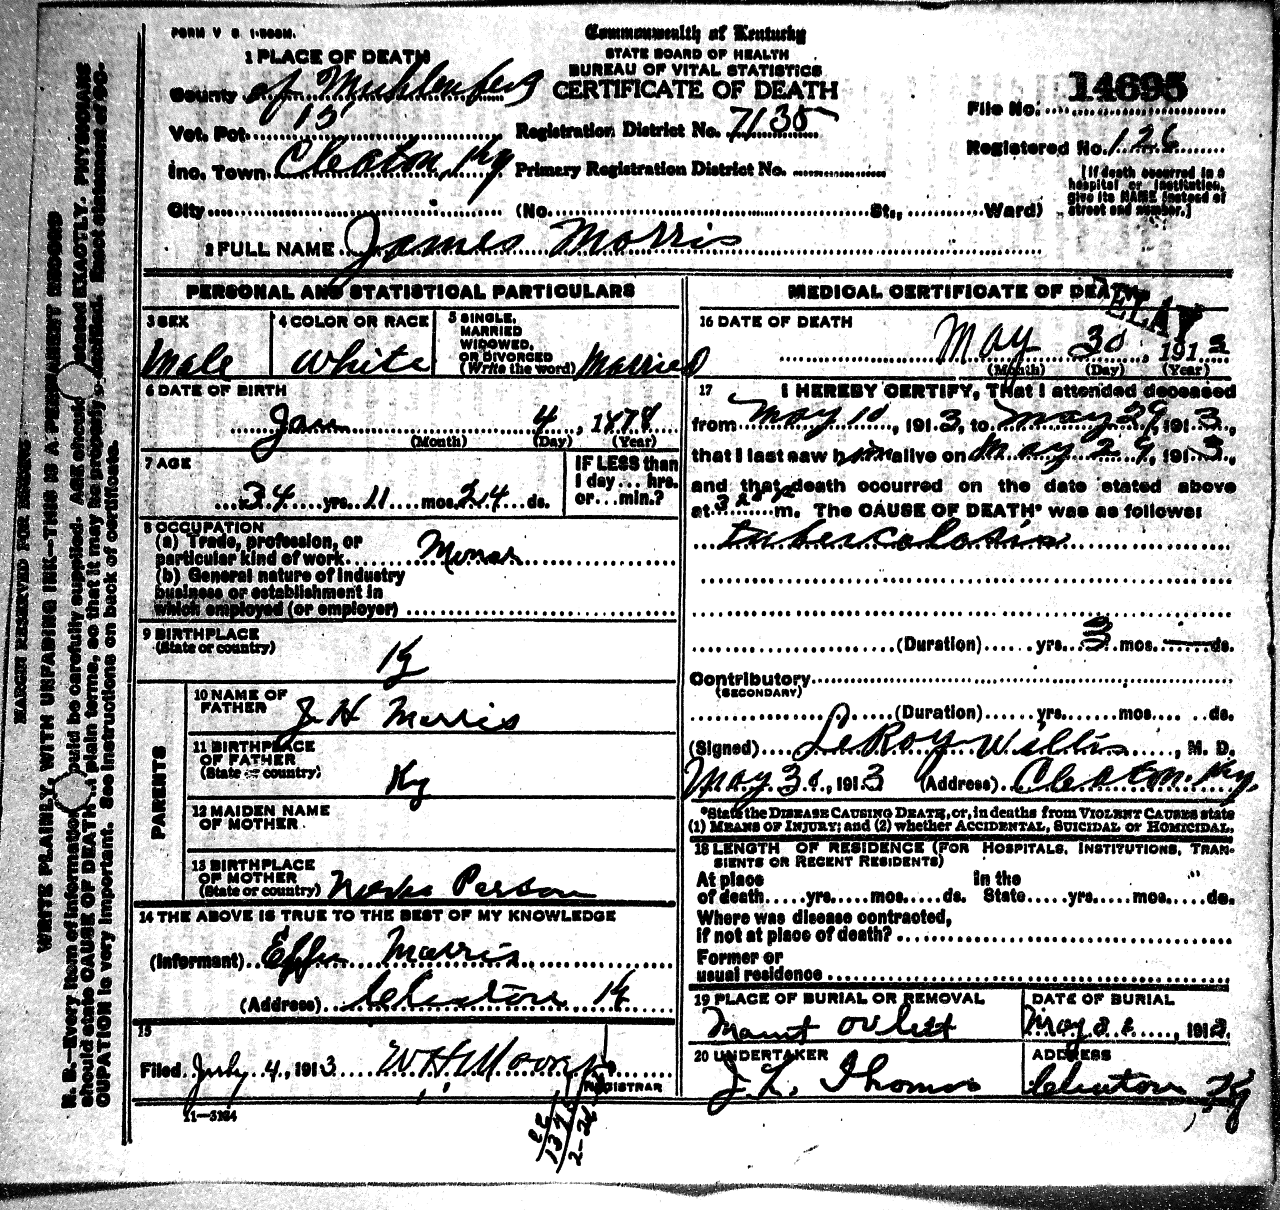 FORM V S. 1-500M.
Commonwealth of Kentucky
STATE BOARD OF HEALTH
BUREAU OF VITAL STATISTICS
CERTIFICATE OF DEATH
1 PLACE OF DEATH
County of Muhlenberg
Vot. Pct. 15
Inc. Town Cleaton, Ky
City
Registration District No. 7135
Primary Registration District No.
(No. St., Ward)
File No. 14695
Registered No. 126
[If death occurred in a
hospital or institution,
give its NAME instead of
street and number.]
2 FULL NAME James Morris
PERSONAL AND STATISTICAL PARTICULARS
3 SEX
Male
4 COLOR OR RACE
White
5 SINGLE,
MARRIED
WIDOWED,
OR DIVORCED
(Write the word) Married
6 DATE OF BIRTH
Jan 4, 1878
(Month) (Day) (Year)
7 AGE
34 yrs. 11 mos. 24 ds.
IF LESS than
1 day... hrs.
or... min.?
8 OCCUPATION
(a) Trade, profession, or
particular kind of work
(b) General nature of industry
business or establishment in
which employed (or employer)
9 BIRTHPLACE
(State or country)
Ky
PARENTS
10 NAME OF
FATHER J. H Morris
11 BIRTHPLACE
OF FATHER
(State or country) Ky
12 MAIDEN NAME
OF MOTHER
13 BIRTHPLACE
OF MOTHER
(State or country) Person
14 THE ABOVE IS TRUE TO THE BEST OF MY KNOWLEDGE
(Informant) Effie Morris
(Address) Cleaton Ky
15
Filed July 4, 1913 W. H. Moore
REGISTRAR
11—3184
MEDICAL CERTIFICATE OF DEATH
DELAY
16 DATE OF DEATH
May 30, 1913
(Month) (Day) (Year)
17 I HEREBY CERTIFY, That I attended deceased
from May 10, 1913, to May 29, 1913,
that I last saw him alive on May 29, 1913,
and that death occurred on the date stated above
at m. The CAUSE OF DEATH* was as follows:
tubercolosis
(Duration) yrs. 3 mos. ds.
Contributory
(SECONDARY)
(Duration) yrs. mos. ds.
(Signed) LeRoy Willis, M. D.
May 30, 1913 (Address) Cleaton, Ky.
*State the DISEASE CAUSING DEATH, or, in deaths from VIOLENT CAUSES state
(1) MEANS OF INJURY; and (2) whether ACCIDENTAL, SUICIDAL or HOMICIDAL.
18 LENGTH OF RESIDENCE (FOR HOSPITALS, INSTITUTIONS, TRAN-
SIENTS OR RECENT RESIDENTS)
At place In the
of death yrs. mos. ds. State yrs. mos. ds.
Where was disease contracted,
if not at place of death?
Former or
usual residence
19 PLACE OF BURIAL OR REMOVAL
DATE OF BURIAL
May
20 UNDERTAKER
J. L. Thomas
ADDRESS
Cleaton Ky
MARGIN RESERVED FOR BINDING
WRITE PLAINLY, WITH UNFADING INK—THIS IS A PERMANENT RECORD
N. B.—Every item of information should be carefully supplied. AGE should be stated EXACTLY. PHYSICIANS
should state CAUSE OF DEATH in plain terms, so that it may be properly classified. Exact statement of OC-
CUPATION is very important. See instructions on back of certificate.